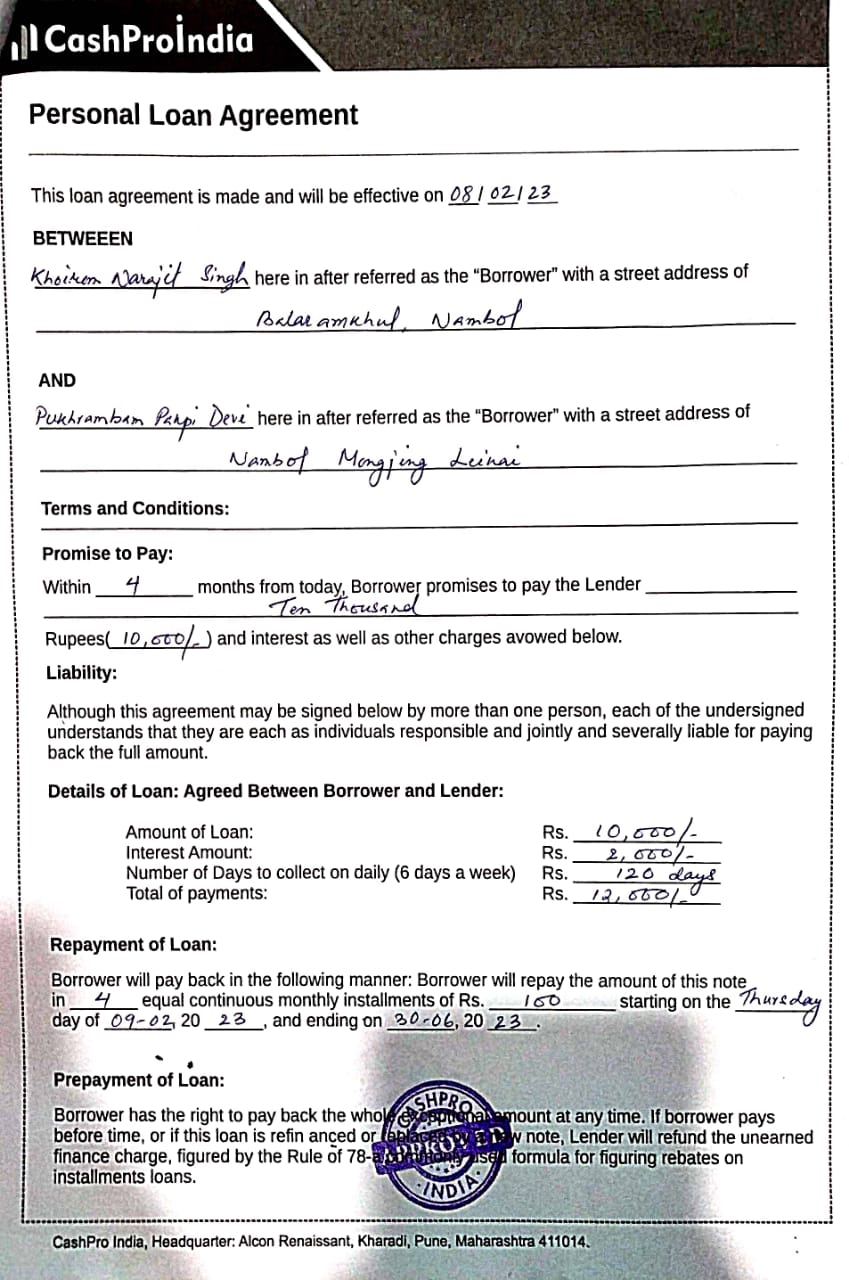 CashProIndia
Personal Loan Agreement
This loan agreement is made and will be effective on 08/02/23
BETWEEEN
Khoirom Narajit Singh here in after referred as the “Borrower” with a street address of
Balaramkhul, Nambol
AND
Pukhrambam Pakpi Devi here in after referred as the “Borrower” with a street address of
Nambol Mongjing Leinai
Terms and Conditions:
Promise to Pay:
Within 4 months from today, Borrower promises to pay the Lender
Ten Thousand
Rupees( 10,000/- ) and interest as well as other charges avowed below.
Liability:
Although this agreement may be signed below by more than one person, each of the undersigned
understands that they are each as individuals responsible and jointly and severally liable for paying
back the full amount.
Details of Loan: Agreed Between Borrower and Lender:
Amount of Loan: Rs. 10,000/-
Interest Amount: Rs. 2,000/-
Number of Days to collect on daily (6 days a week) Rs. 120 days
Total of payments: Rs. 12,000/-
Repayment of Loan:
Borrower will pay back in the following manner: Borrower will repay the amount of this note
in 4 equal continuous monthly installments of Rs. 100 starting on the Thursday
day of 09-02, 20 23, and ending on 30-06, 20 23.
Prepayment of Loan:
Borrower has the right to pay back the whole exceptional amount at any time. If borrower pays
before time, or if this loan is refin anced or replaced by a new note, Lender will refund the unearned
finance charge, figured by the Rule of 78-a commonly used formula for figuring rebates on
installments loans.
CASHPRO
APPROVED
INDIA
CashPro India, Headquarter: Alcon Renaissant, Kharadi, Pune, Maharashtra 411014.